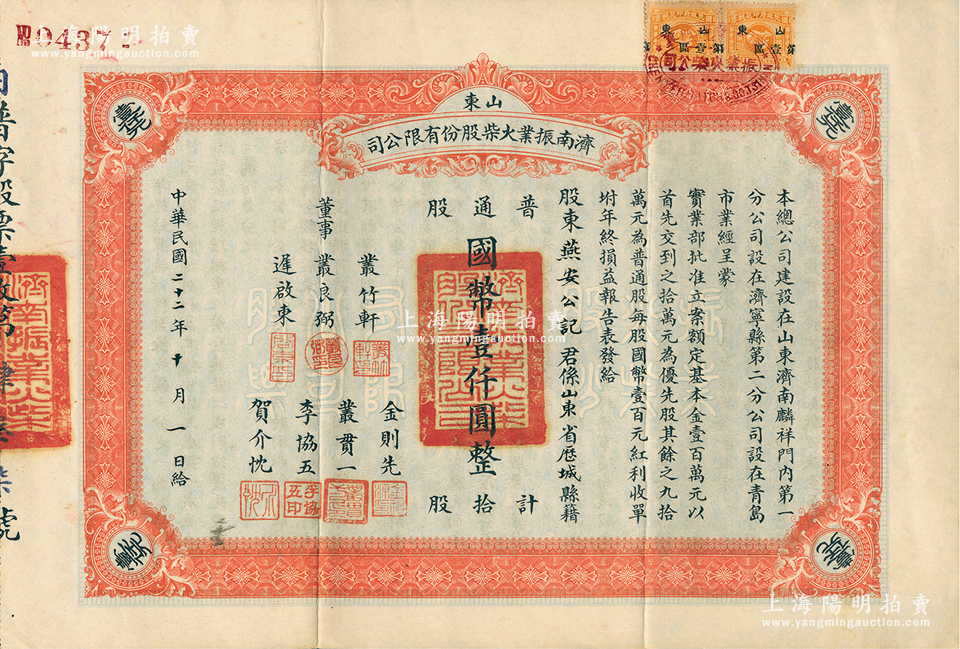 0437
上海陽明拍賣
www.yangmingauction.com
山東
濟南振業火柴股份有限公司
本總公司建設在山東濟南麟祥門內第一
分公司設在濟寧縣第二分公司設在青島
市業經呈蒙
實業部批准立案額定基本金壹百萬元以
首先交到之拾萬元為優先股其餘之九拾
萬元為普通股每股國幣壹百元紅利收單
坿年終損益報告表發給
股東燕安公記 君係山東省歷城縣籍
普通股
計拾股
國幣壹仟圓整
董事
叢竹軒
叢良弼
遲啟東
金則先
叢貫一
李協五
賀介忱
中華民國二十二年十月一日給
上海陽明拍賣
www.yangmingauction.com
上海陽明拍賣
www.yangmingauction.com